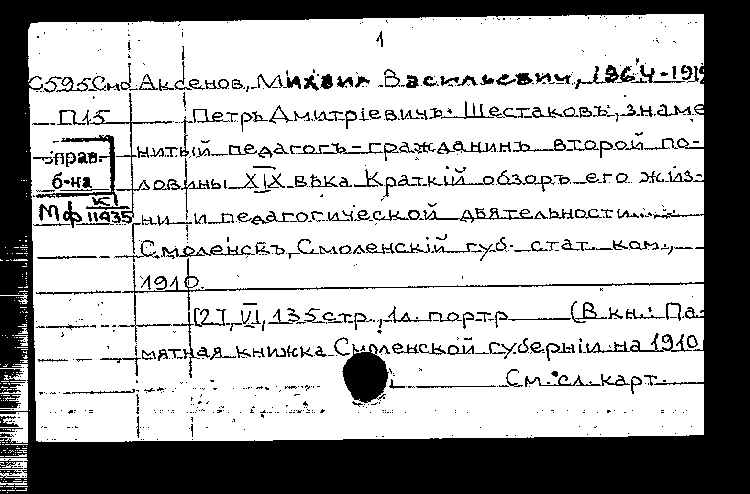 1
С595Смо Аксенов, Михаил Васильевич, 1964-1919
П15 Петръ Дмитріевичъ Шестаковъ, знаме
нитый педагогъ-гражданинъ второй по-
справ. б-на
ловины XIX вѣка Краткій обзоръ его жиз-
Мф К1/11435
ни и педагогической дѣятельности
Смоленскъ, Смоленскій губ. стат. ком.,
1910.
[2], VI, 135 стр., 1л. портр (В кн.: Па-
мятная книжка Смоленской губерніи на 1910
См. сл. карт.